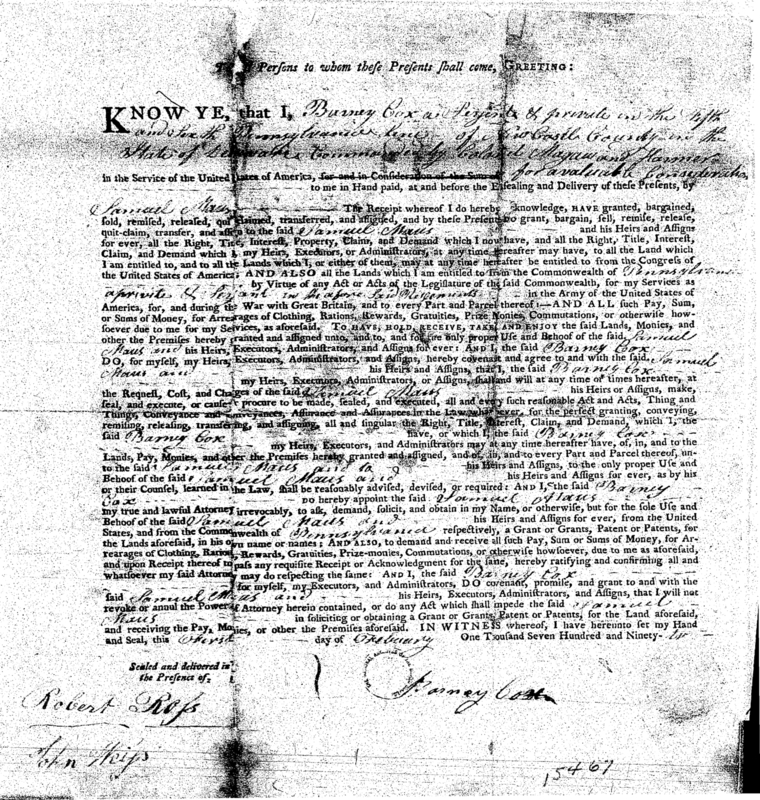 Persons to whom these Presents shall come, GREETING:
KNOW YE, that I, Barney Cox a Serjent & private in the fifth
and Pennsylvania Line of New Castle County in the
State of Delaware Commanded by Colonel Magaw and Harmer
in the Service of the United States of America, for and in Consideration of the Sum of for a valuable Consideration
to me in Hand paid, at and before the Ensealing and Delivery of these Presents, by
Samuel Maus The Receipt whereof I do hereby knowledge, HAVE granted, bargained,
sold, remised, released, quit claimed, transferred, and assigned, and by these Presents do grant, bargain, sell, remise, release,
quit-claim, transfer, and assign to the said Samuel Maus and his Heirs and Assigns
for ever, all the Right, Title, Interest, Property, Claim, and Demand which I now have, and all the Right, Title, Interest,
Claim, and Demand which I, my Heirs, Executors, or Administrators, at any time hereafter may have, to all the Land which
I am entitled to, and to all the Lands which I, or either of them, may at any time hereafter be entitled to from the Congress of
the United States of America: AND ALSO all the Lands which I am entitled to from the Commonwealth of Pennsylvania
by Virtue of any Act or Acts of the Legislature of the said Commonwealth, for my Services as
a private & Serjant in the afore Said Regiments in the Army of the United States of
America, for, and during the War with Great Britain, and to every Part and Parcel thereof:—AND ALL such Pay, Sum,
or Sums of Money, for Arrearages of Clothing, Rations, Rewards, Gratuities, Prize Monies, Commutations, or otherwise how-
soever due to me for my Services, as aforesaid. TO HAVE, HOLD, RECEIVE, TAKE AND ENJOY the said Lands, Monies, and
other the Premises hereby granted and assigned unto, and to, and for the only proper Use and Behoof of the said Samuel
Maus and his Heirs, Executors, Administrators, and Assigns for ever: AND I, the said Barney Cox
DO, for myself, my Heirs, Executors, Administrators, and Assigns, hereby covenant and agree to and with the said Samuel
Maus and his Heirs and Assigns, that I, the said Barney Cox
my Heirs, Executors, Administrators, or Assigns, shall and will at any time or times hereafter, at
the Request, Cost, and Charges of the said Samuel Maus his Heirs or Assigns, make,
seal, and execute, or cause or procure to be made, sealed, and executed, all and every such reasonable Act and Acts, Thing and
Things, Conveyance and Conveyances, Assurance and Assurances in the Law whatsoever, for the perfect granting, conveying,
remising, releasing, transfering, and assigning, all and singular the Right, Title, Interest, Claim, and Demand, which I, the
said Barney Cox have, or which I, the said Barney Cox
my Heirs, Executors, and Administrators may at any time hereafter have, of, in, and to the
Lands, Pay, Monies, and other the Premises hereby granted and assigned, and of, in, and to every Part and Parcel thereof, un-
to the said Samuel Maus and to his Heirs and Assigns, to the only proper Use and
Behoof of the said Samuel Maus and his Heirs and Assigns for ever, as by his
or their Counsel, learned in the Law, shall be reasonably advised, devised, or required: AND I, the said Barney
Cox DO hereby appoint the said Samuel Maus
my true and lawful Attorney irrevocably, to ask, demand, solicit, and obtain in my Name, or otherwise, but for the sole Use and
Behoof of the said Samuel Maus and his Heirs and Assigns for ever, from the United
States, and from the Commonwealth of Pennsylvania respectively, a Grant or Grants, Patent or Patents, for
the Lands aforesaid, in his own name or names: AND ALSO, to demand and receive all such Pay, Sum or Sums of Money, for Ar-
rearages of Clothing, Rations, Rewards, Gratuities, Prize-monies, Commutations, or otherwise howsoever, due to me as aforesaid,
and upon Receipt thereof to pass any requisite Receipt or Acknowledgment for the same, hereby ratifying and confirming all and
whatsoever my said Attorney may do respecting the same: AND I, the said Barney Cox
for myself, my Executors, and Administrators, DO covenant, promise, and grant to and with the
said Samuel Maus and his Heirs, Executors, Administrators, and Assigns, that I will not
revoke or annul the Power of Attorney herein contained, or do any Act which shall impede the said Samuel
Maus in soliciting or obtaining a Grant or Grants, Patent or Patents, for the Land aforesaid,
and receiving the Pay, Monies, or other the Premises aforesaid. IN WITNESS whereof, I have hereunto set my Hand
and Seal, this first day of One Thousand Seven Hundred and Ninety-
Sealed and delivered in
the Presence of:
Barney Cox
Robert Ross
John Weiss
15467